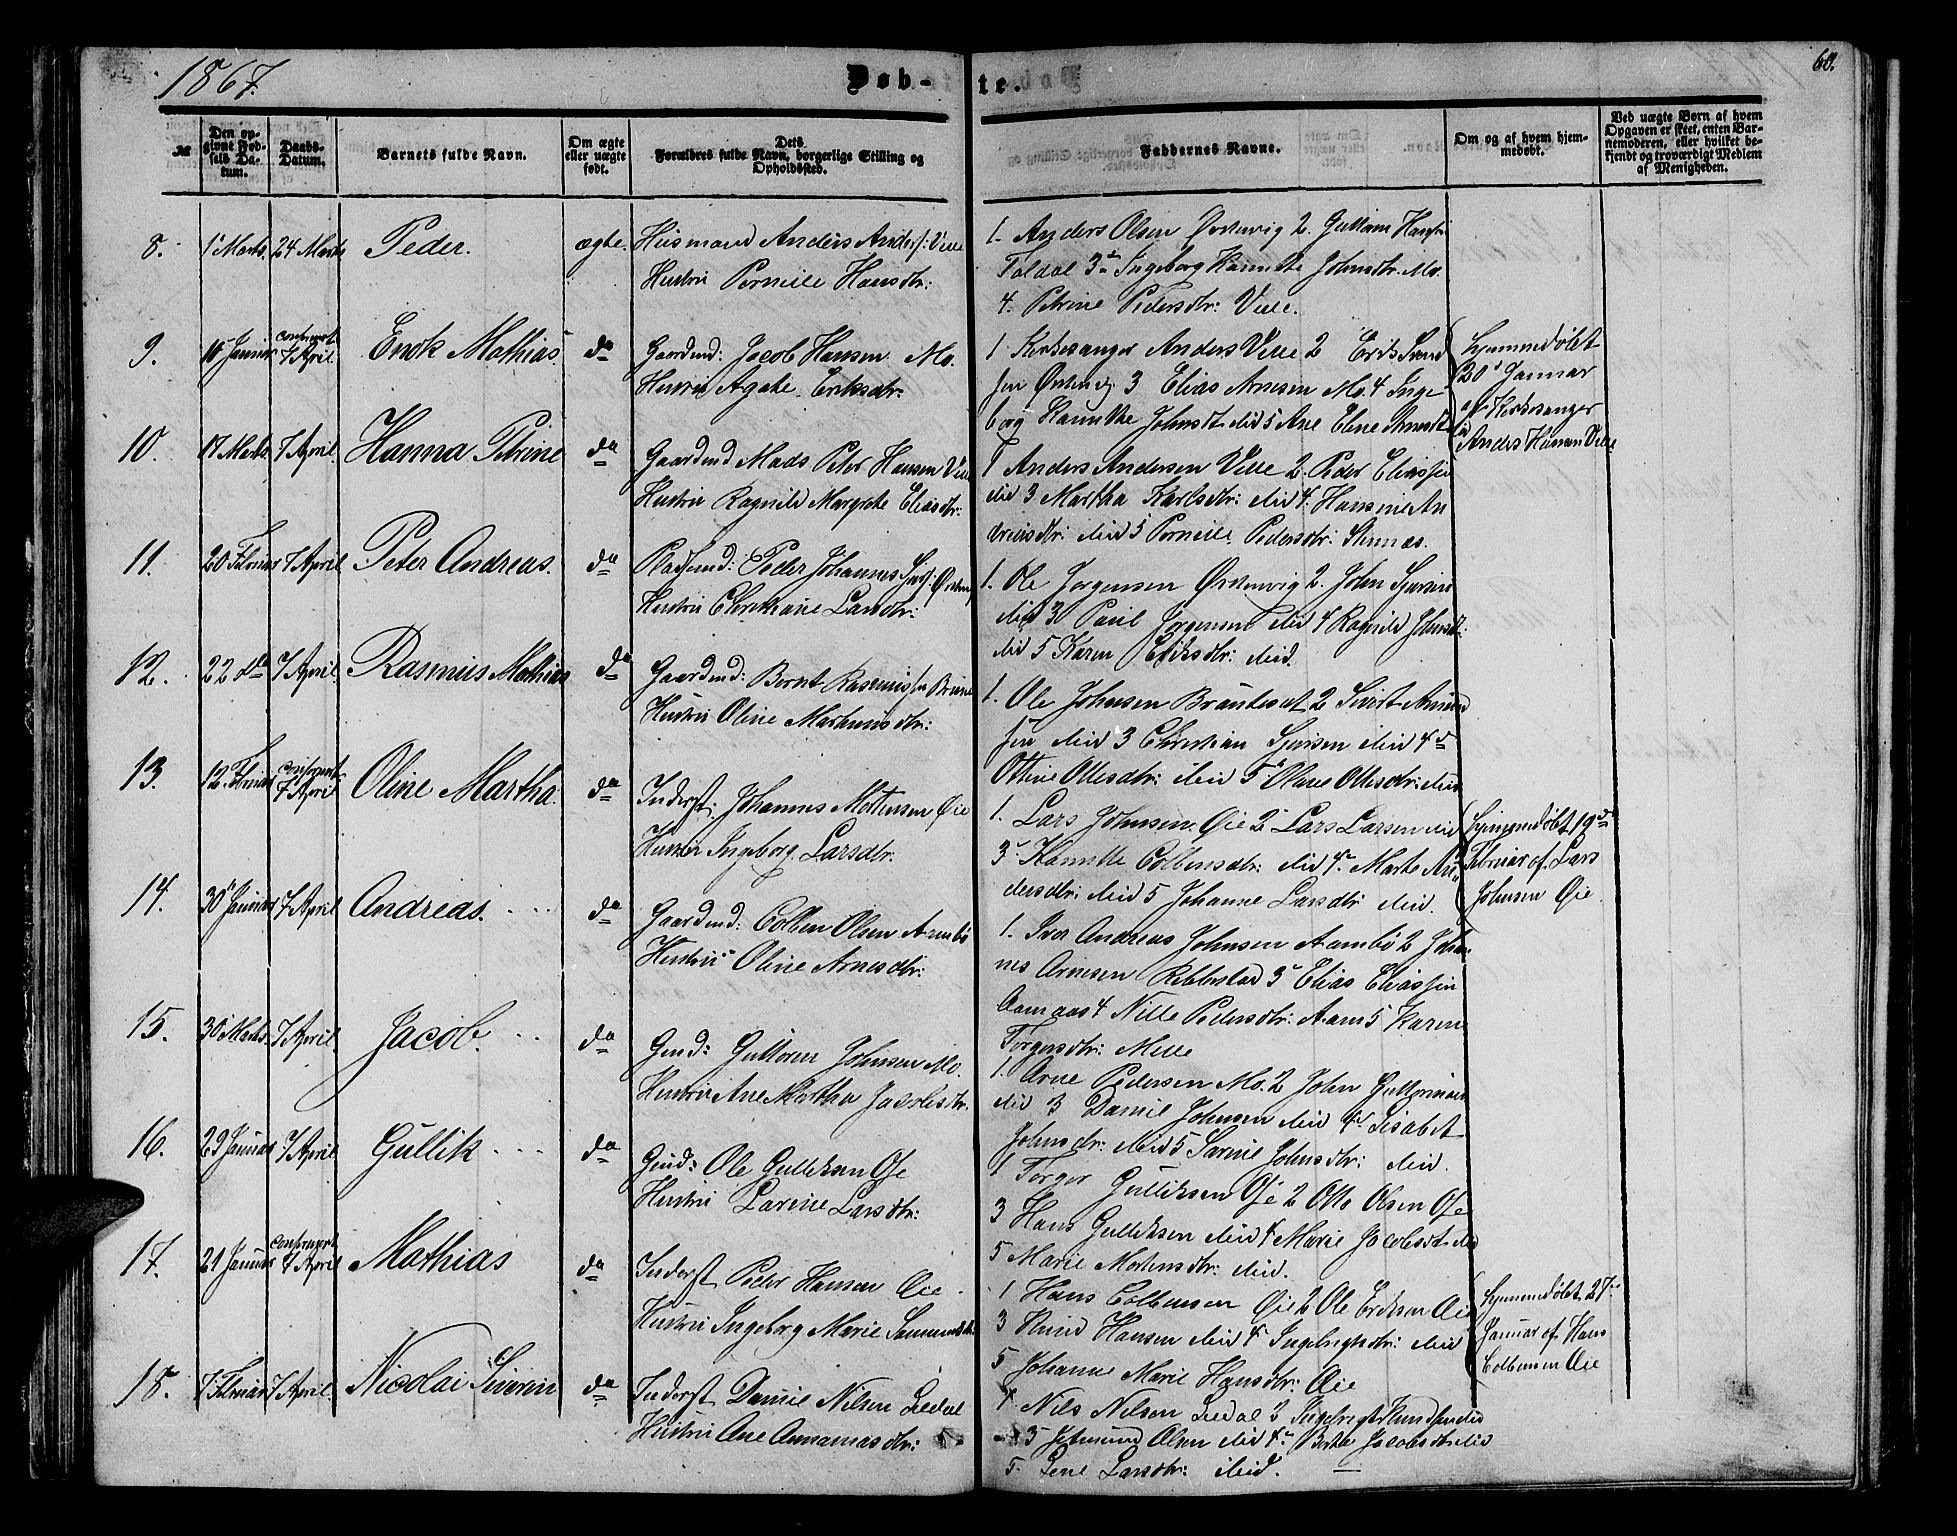 1867.
Døb-
te.
60.
№
Den op-
givne Fød-
sels Da-
tum.
Daabs-
Datum.
Barnets fulde Navn.
Om ægte
eller uægte
født.
Dets
Forældres fulde Navn, borgerlige Stilling og
Opholdssted.
Faddernes Navne.
Om og af hvem hjem-
medøbt.
Ved uægte Børn af hvem
Opgaven er skeet, enten Bar-
nemoderen, eller hvilket be-
kjendt og troværdigt Medlem
af Menigheden.
8. 1 Marts. 24 Marts Peder. ægte.
Husmand Anders Anders: Velle
Hustru Pernille Hansdtr:
1. Anders Olsen Ørstenvig 2.
3 Ingeborg Johnsdtr. Mo.
4. Petrine Pedersdtr: Velle.
9. 16 Januar 7 April Enok Mathias do
Gaardmd: Jacob Hansen Mo.
Hustru Agate Eriksdtr:
1 Kirkesanger Anders Velle 2 Erik
3 Elias Arnesen Mo. 4 Inge
borg Johnsdt ibid 5 Ane Elene
Hjemmedøbt
20 Januar
af Kirkesanger
Anders Hansen Velle
10. 17 Marts 7 April Hanna Petrine do
Gaardmd Mads Peter Hansen Velle
Hustru Ragnild Margrete Eliasdtr:
1 Anders Andersen Velle 2. Peder Eliassen
ibid 3 Martha Karlsdtr: ibid 4. Hansine An
dreasdtr: ibid 5 Pernille Pedersdtr:
11. 20 Februar 7 April Peter Andreas. do
Pladsmd: Peder Johannes
Hustru Christiane Larsdtr:
1. Ole Jørgensen Ørstenvig 2. John
ibid 3 Paul Jørgensen ibid 4 Ragnild Johnsdt:
ibid 5 Karen Eriksdtr: ibid.
12. 22 do 7 April Rasmus Mathias do
Gaardmd: Bernt Rasmussen
Hustru Oline Martinusdtr:
1. Ole Johnsen 2 Sivert
sen ibid 3 Christian ibid 4
Ottine Ottesdtr: ibid 5 Olave Ottesdtr: ibid
13. 12 Februar 7 April Oline Martha. do
Inderst: Johannes Øie
Hustru Ingeborg Larsdtr:
1. Lars Johnsen Øie 2 Lars Larsen ibid
3 Colbensdtr: ibid 4 Marte An
dersdtr: ibid 5 Johanne Larsdtr ibid.
Hjemmedøbt 19
Februar af Lars
Johnsen Øie.
14. 30 Januar 7 April Andreas. do
Gaardmd: Colben Olsen Aambø
Hustru Oline Arnesdtr:
1. Iver Andreas Johnsen Aambø 2 Johan
nes Arnesen Ribbestad 3 Elias Eliassen
Aamaas 4 Nille Pedersdtr: Aam 5 Karen
Torgersdtr: Melle
15. 30 Marts. 7 April. Jacob. do
Gmd: Guttorm Johnsen Mo.
Hustru Ane Martha Jacobsdtr.
1. Arne Pedersen Mo. 2 John Guttormsen
ibid 3 Daniel Johnsen ibid 4 Lisabet
Johnsdtr: ibid 5 Sarine Johnsdtr: ibid.
16. 29 Januar 7 April Gullik do
Gmd: Ole Gulliksen Øse
Hustru Larine Larsdtr:
1 Torger Gulliksen Øse 2 Otto Olsen Øse
3 Hans Gulliksen ibid 4 Marie Jacobsdt ibid
5 Marie Mortensdtr: ibid.
17. 21 Januar 7 April Mathias do
Inderst Peder Hansen Øie
Hustru Ingeborg Marie
1 Hans Colbensen Øie 2 Ole Eriksen Øie
3 Knud Hansen ibid 4 ibid
5 Johanne Marie Hansdtr: Øie
Hjemmedøbt 27
Januar af Hans
Colbensen Øie
18. 7 Februar 7 April. Nicolai Siverin do
Inderst Daniel Nilsen Lidal
Hustru Ane
1. Nils Nilsen Lidal 2 Ingebrigt Knudsen ibid
3 Olsen ibid 4 Jacobsdt ibid
5. Lene Larsdtr: ibid.